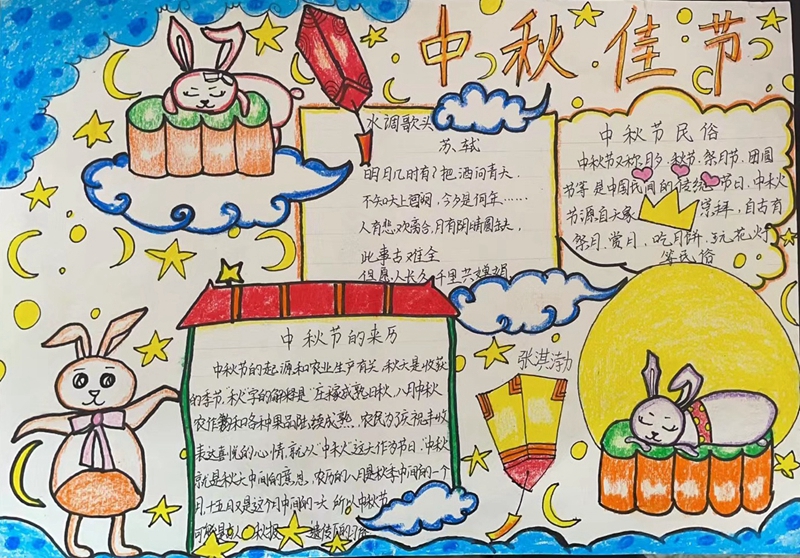 中秋佳节
水调歌头
苏轼
明日几时有?把酒问青天.
不知天上宫阙,今夕是何年……
人有悲欢离合,月有阴晴圆缺,
此事古难全
但愿人长久,千里共婵娟
中秋节民俗
中秋节又称月夕,秋节,祭月节,团圆
节等是中国民间的传统节日,中秋
节源自天象崇拜,自古有
祭月、赏月、吃月饼、玩花火灯
等民俗
中秋节的来历
中秋节的起源和农业生产有关秋天是收获
的季节"秋"字的解释是"庄稼成熟曰秋,八月中秋
农作物和各种果品陆续成熟,农民为庆祝丰收
表达喜悦的心情就以"中秋"这天作为节日"中秋
就是秋天中间的意思,农历的八月是秋季中间的一个
月,十五日又是这个月中间的一天所以中秋节
可能是古人秋报遗传
张淇渤